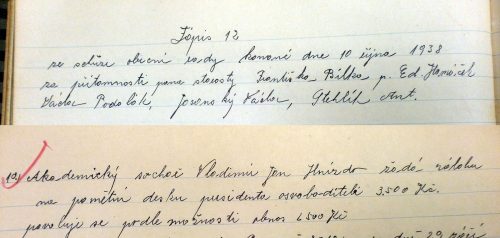 Zápis 12
ze schůze obecní rady konané dne 10 října 1938
za přítomnosti pana starosty Františka Bílka p. Ed.
Václav Podolák, Václav, Stehlík Ant.
19, Akademický sochař Vladimír Jan Hnízdo žádá zálohu
na pamětní desku presidenta osvoboditele 3.500 Kč.
povoluje se podle možnosti obnos 1.500 Kč
29 září